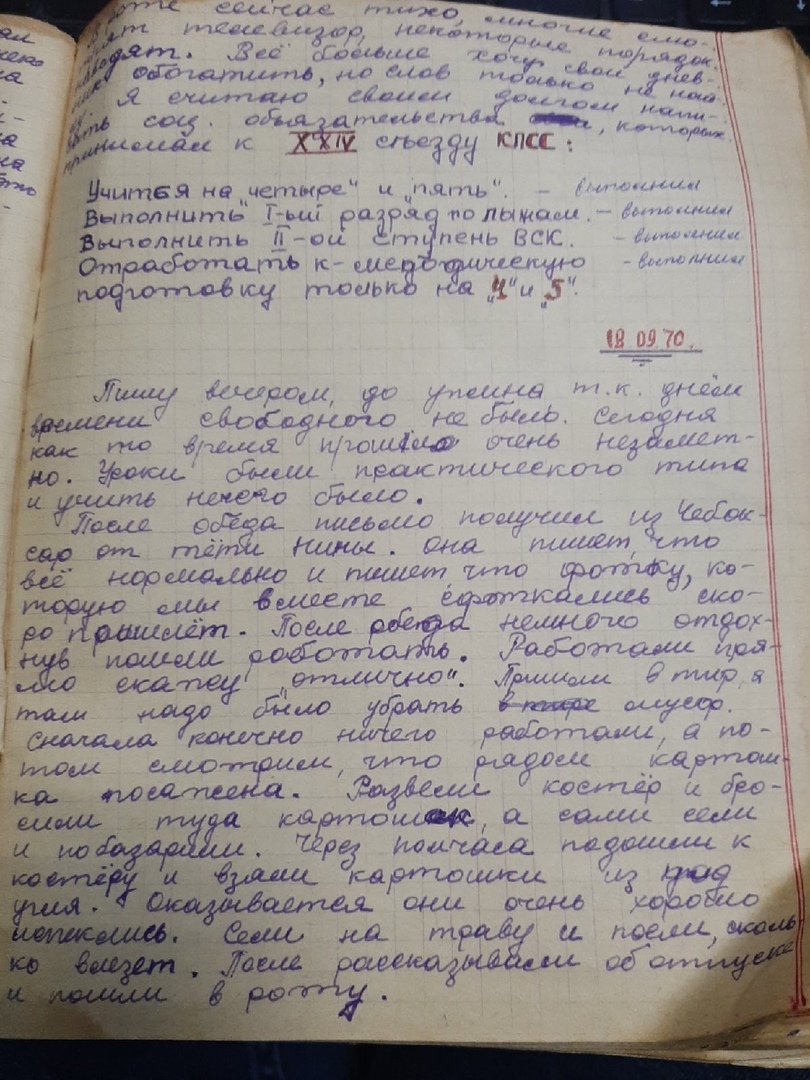 роте сейчас тихо, многие смо-
трят телевизор, некоторые порядок
наводят. Всё больше хочу свой днев-
ник обогатить, но слов только не най-
ду. Я считаю своим долгом напи-
сать соц. обязательства, которых
принимал к XXIV съезду КПСС:
Учиться на "четыре" и "пять". - выполнил
Выполнить I-ый разряд по лыжам. - выполнил
Выполнить II-ой ступень ВСК. - выполнил
Отработать к-медодическую - выполнил
подготовку только на "4" и "5".
18 09 70.
Пишу вечером, до ужина, т.к. днём
времени свободного не было. Сегодня
как то время прошло очень незамет-
но. Уроки были практического типа
и учить нечего было.
После обеда письмо получил из Чебок-
сар от тёти Нины. Она пишет, что
всё нормально и пишет, что фотку, ко-
торую мы вместе сфоткались ско-
ро пришлёт. После обеда немного отдох-
нув пошли работать. Работали пря-
мо скажу "отлично". Пришли в тир, а
там надо было убрать в тире мусор.
Сначала конечно ничего работали, а по-
том смотрим, что рядом картош-
ка посажена. Развели костёр и бро-
сили туда картошек, а сами сели
и побазарили. Через полчаса подошли к
костёру и взяли картошки из под
угля. Оказывается они очень хорошо
испеклись. Сели на траву и поели, сколь
ко влезет. После рассказывали об отпуске
и пошли в роту.